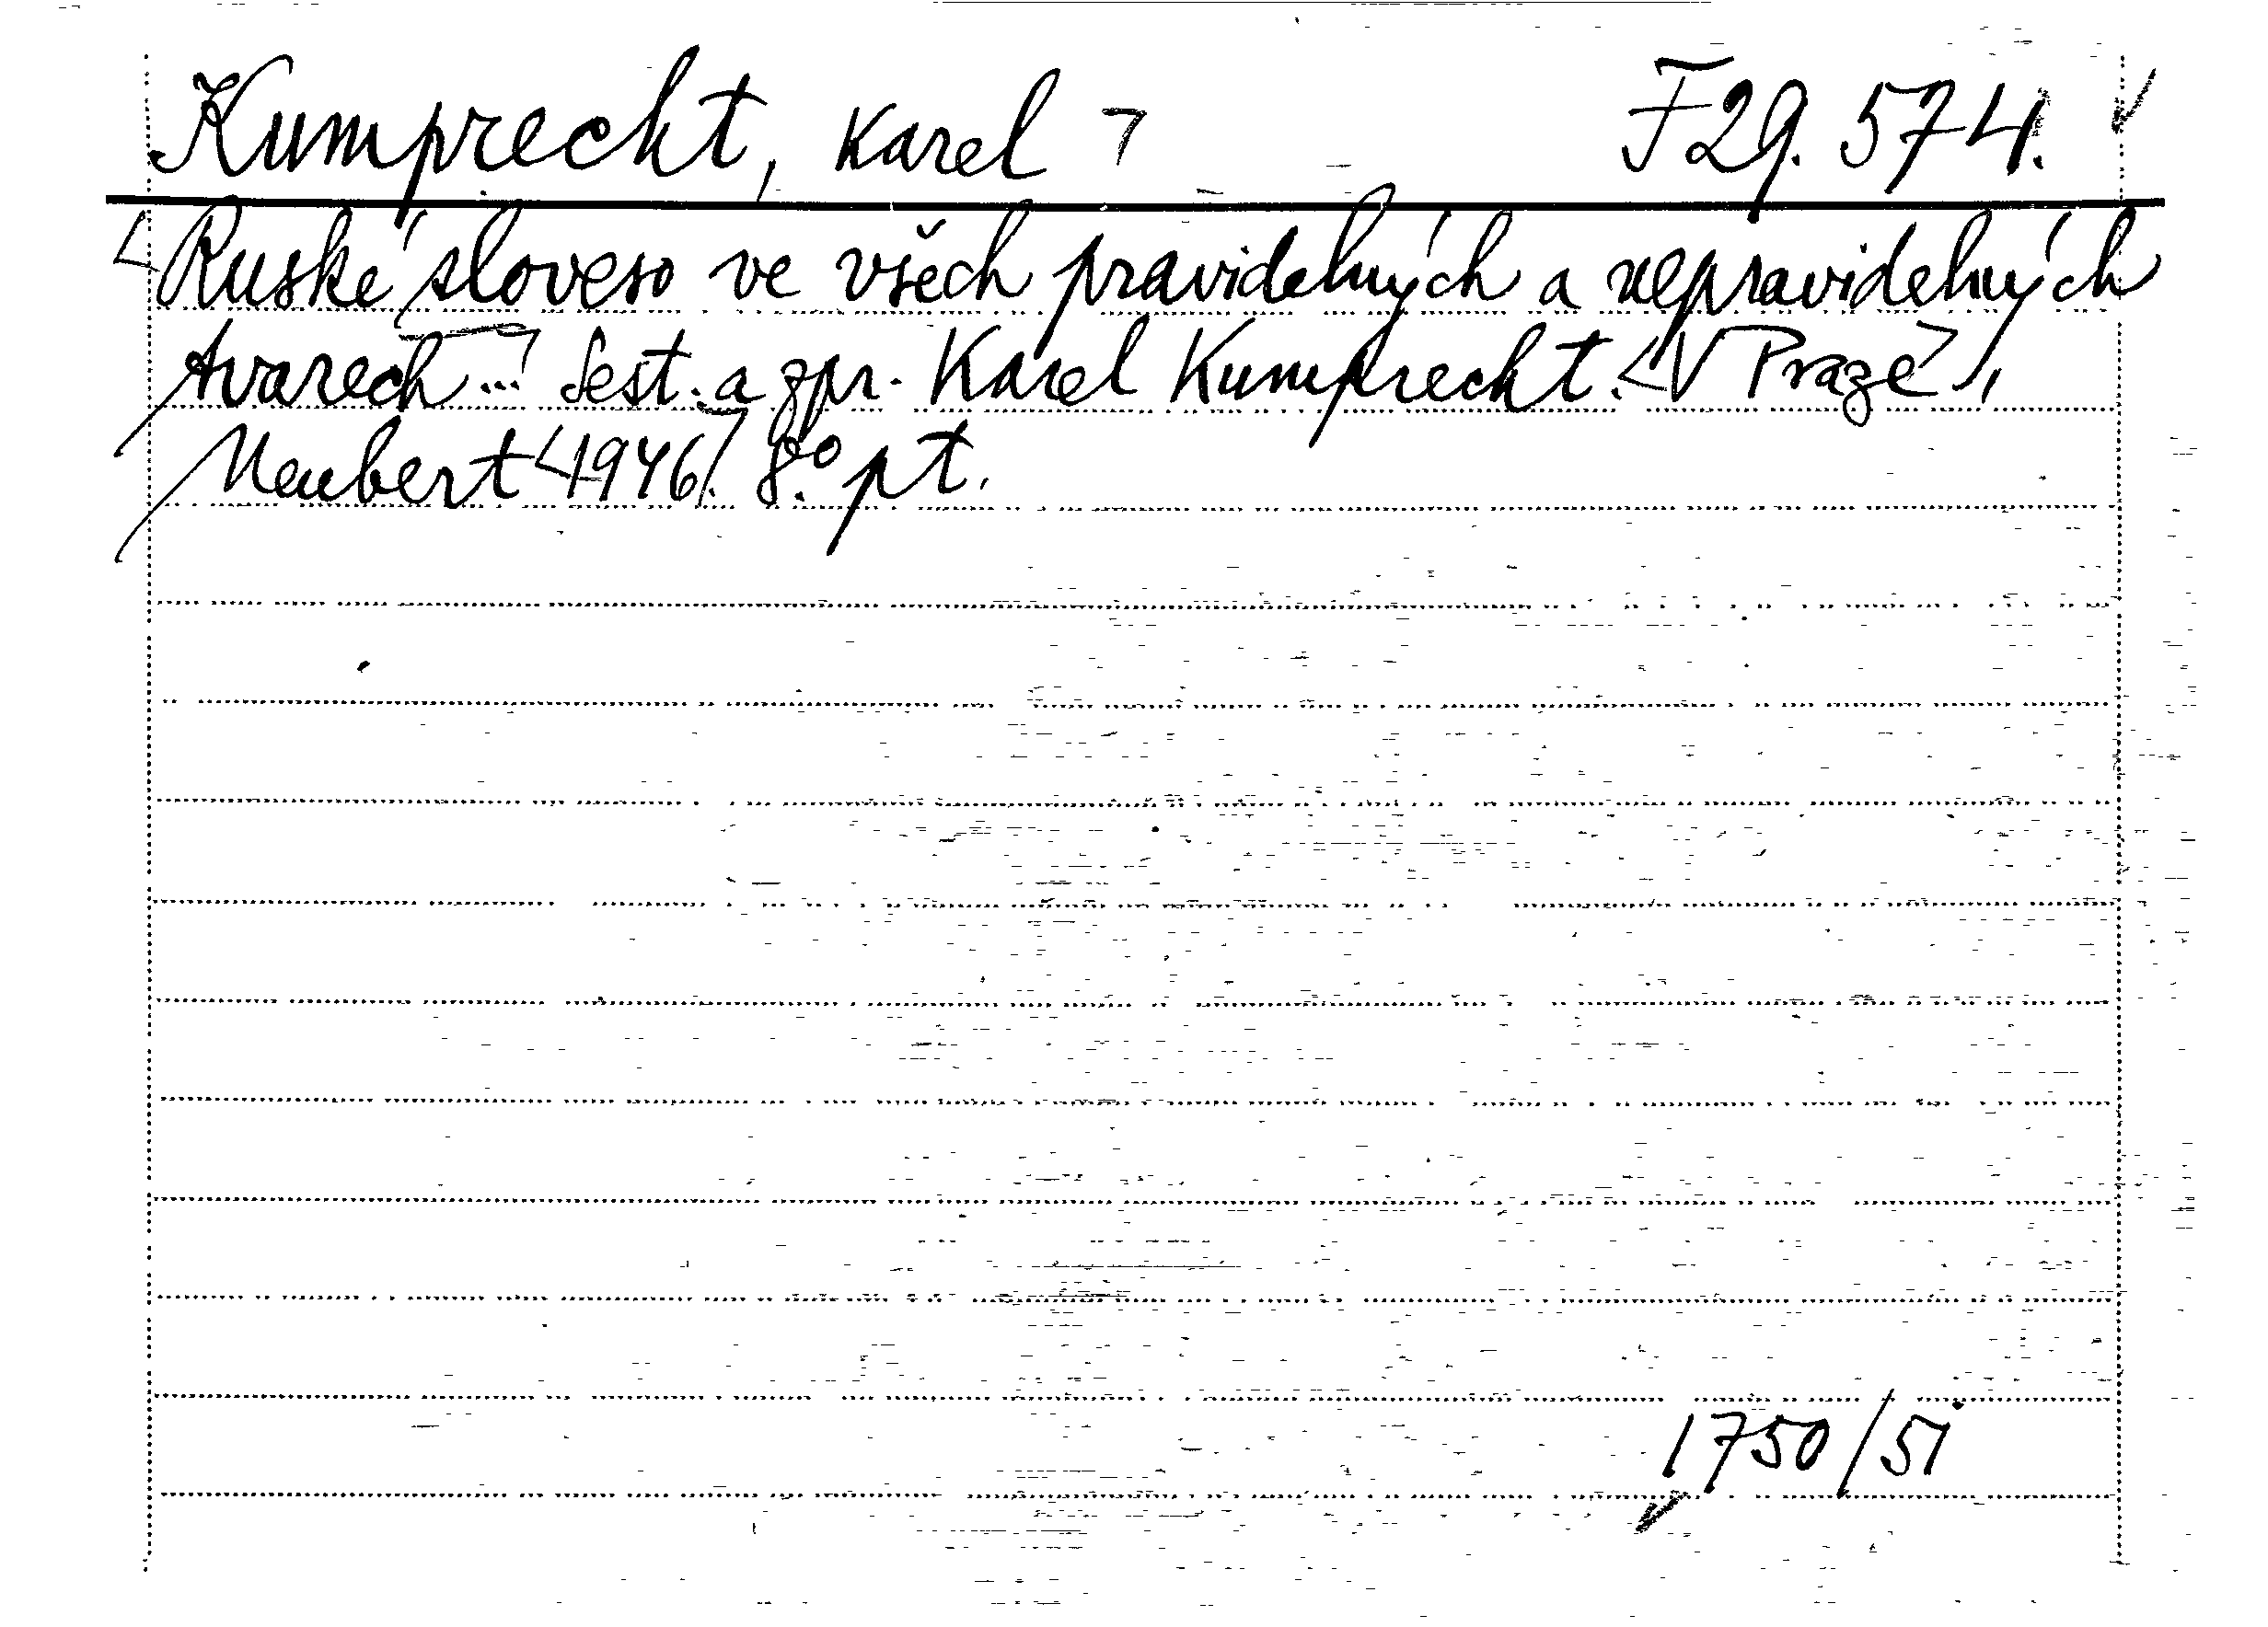 Kumprecht, Karel F 29.574.
Ruské sloveso ve všech pravidelných a nepravidelných
tvarech... Sest. a zpr. Karel Kumprecht. V Praze,
Neubert 1946. 8.° pt.
1750/51